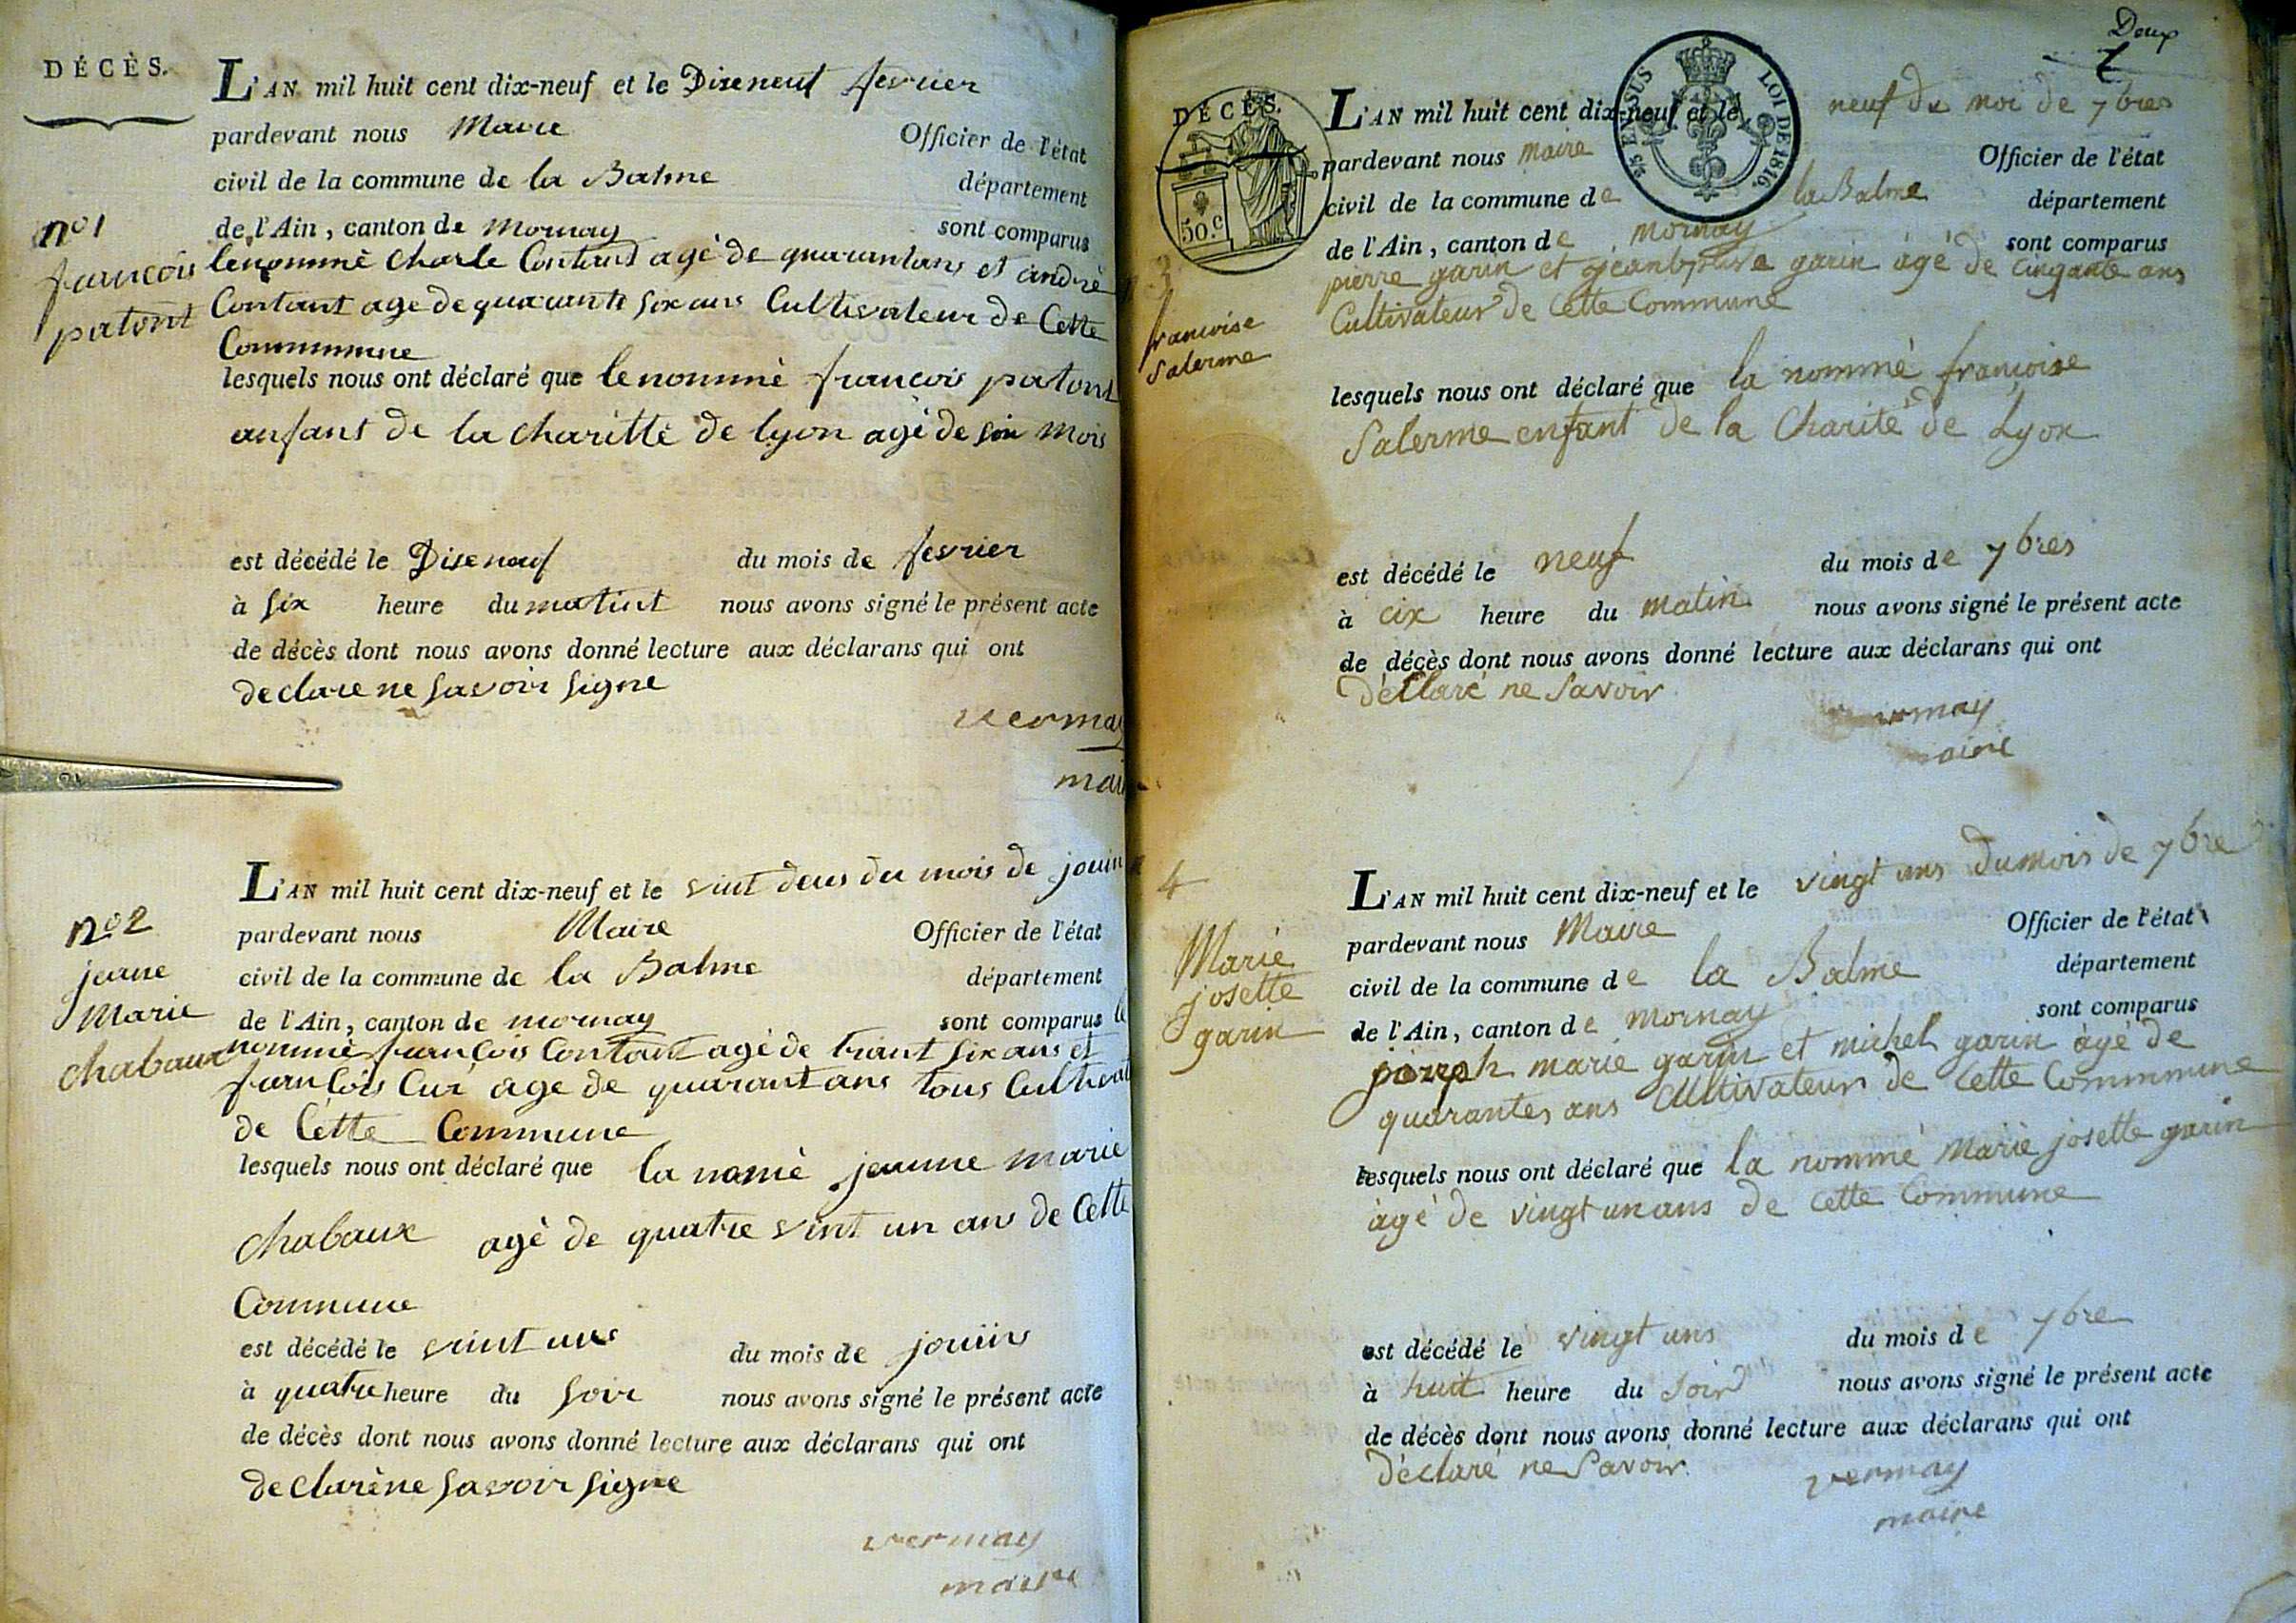 DÉCÈS.
L'AN mil huit cent dix-neuf et le Diseneuf fevrier
pardevant nous Maire Officier de l'état
civil de la commune de la Balme département
de l'Ain, canton de Mornay sont comparus
n° 1
francois
patont
lenommè Charle Contant agè de quarantans et andrè
Contant age de quarante six ans Cultivateur de Cette
Commmune
lesquels nous ont déclaré que lenommè francois patont
anfans de la charittè de lyon agè de six mois
est décédé le Diseneuf du mois de fevrier
à six heure du matint nous avons signé le présent acte
de décès dont nous avons donné lecture aux déclarans qui ont
declare ne savoir signe
vermay
mai
L'AN mil huit cent dix-neuf et le vint deus du mois de jouin
pardevant nous Maire Officier de l'état
civil de la commune de la Balme département
de l'Ain, canton de mornay sont comparus le
n° 2
jeane
Marie
chabaux
nommè francois Contant agè de trant six ans et
francois Cur age de quarantans tous Cultivat
de Cette Commune
lesquels nous ont déclaré que la nomè jeanne marie
chabaux agè de quatre vint un an de Cette
Commune
est décédé le vint uns du mois de jouiin
à quatre heure du soir nous avons signé le présent acte
de décès dont nous avons donné lecture aux déclarans qui ont
declarène savoir signe
vermay
maire
Deux
2
DÉCÈS.
50.c
EN SUS
LOI DE 1816.
L'AN mil huit cent dix-neuf et le neuf du moi de 7bres
pardevant nous maire Officier de l'état
civil de la commune de la Balme département
de l'Ain, canton de mornay sont comparus
3
francoise
Salerme
pierre garin et jeanbptiste garin âgé de cinqante ans
Cultivateur de Cette Commune
lesquels nous ont déclaré que la nommé françoise
Salerme enfant de la Charité de Lyon
est décédé le neuf du mois de 7bres
à cix heure du matin nous avons signé le présent acte
de décès dont nous avons donné lecture aux déclarans qui ont
déclaré ne savoir
vermay
maire
L'AN mil huit cent dix-neuf et le vingt uns du mois de 7bre
pardevant nous Maire Officier de l'état
civil de la commune de la Balme département
de l'Ain, canton de Mornay sont comparus
4
Marie
josette
garin
marie garin et michel garin âgé de
quarantes ans Cultivateur de Cette Commmune
lesquels nous ont déclaré que la nommé Marie josette garin
âgé de vingt un ans de Cette Commune
est décédé le vingt uns du mois de 7bre
à huit heure du soir nous avons signé le présent acte
de décès dont nous avons donné lecture aux déclarans qui ont
déclaré ne savoir
vermay
maire